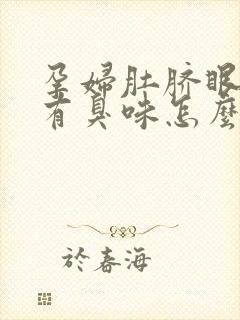 孕婦肚脐眼
有臭味怎麼
於春海